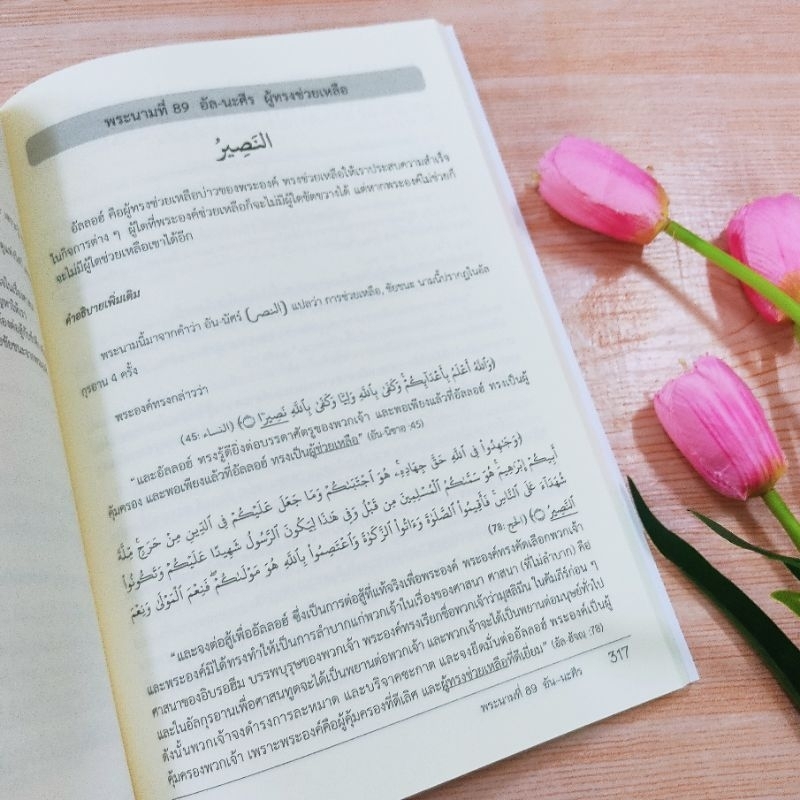 พระนามที่ 89 อัล-นะศีร ผู้ทรงช่วยเหลือ
النَصِيرُ
อัลลอฮ์ คือผู้ทรงช่วยเหลือบ่าวของพระองค์ ทรงช่วยเหลือให้เราประสบความสำเร็จ
ในกิจการต่าง ๆ ผู้ใดที่พระองค์ช่วยเหลือก็จะไม่มีผู้ใดขัดขวางได้ แต่หากพระองค์ไม่ช่วยก็
จะไม่มีผู้ใดช่วยเหลือเขาได้อีก
คำอธิบายเพิ่มเติม
พระนามนี้มาจากคำว่า อัน-นัศร์ (النصر) แปลว่า การช่วยเหลือ, ชัยชนะ นามนี้ปรากฏในอัล
กุรอาน 4 ครั้ง
พระองค์ทรงกล่าวว่า
﴿وَاللَّهُ أَعْلَمُ بِأَعْدَائِكُمْ وَكَفَىٰ بِاللَّهِ وَلِيًّا وَكَفَىٰ بِاللَّهِ نَصِيرًا﴾ (النساء :45)
"และอัลลอฮ์ ทรงรู้ดียิ่งต่อบรรดาศัตรูของพวกเจ้า และพอเพียงแล้วที่อัลลอฮ์ ทรงเป็นผู้
คุ้มครอง และพอเพียงแล้วที่อัลลอฮ์ ทรงเป็นผู้ช่วยเหลือ" (อัน-นิซาอ :45)
﴿وَجَٰهِدُوا۟ فِى ٱللَّهِ حَقَّ جِهَادِهِۦ هُوَ ٱجْتَبَىٰكُمْ وَمَا جَعَلَ عَلَيْكُمْ فِى ٱلدِّينِ مِنْ حَرَجٍ مِّلَّةَ
أَبِيكُمْ إِبْرَٰهِيمَ هُوَ سَمَّىٰكُمُ ٱلْمُسْلِمِينَ مِن قَبْلُ وَفِى هَٰذَا لِيَكُونَ ٱلرَّسُولُ شَهِيدًا عَلَيْكُمْ وَتَكُونُوا۟
شُهَدَآءَ عَلَى ٱلنَّاسِ فَأَقِيمُوا۟ ٱلصَّلَوٰةَ وَءَاتُوا۟ ٱلزَّكَوٰةَ وَٱعْتَصِمُوا۟ بِٱللَّهِ هُوَ مَوْلَىٰكُمْ فَنِعْمَ ٱلْمَوْلَىٰ وَنِعْمَ
ٱلنَّصِيرُ﴾ (الحج :78)
"และจงต่อสู้เพื่ออัลลอฮ์ ซึ่งเป็นการต่อสู้ที่แท้จริงเพื่อพระองค์ พระองค์ทรงคัดเลือกพวกเจ้า
และพระองค์มิได้ทรงทำให้เป็นการลำบากแก่พวกเจ้าในเรื่องของศาสนา ศาสนา (ที่ไม่ลำบาก) คือ
ศาสนาของอิบรอฮีม บรรพบุรุษของพวกเจ้า พระองค์ทรงเรียกชื่อพวกเจ้าว่ามุสลิมีน ในคัมภีร์ก่อน ๆ
และในอัลกุรอานเพื่อศาสนทูตจะได้เป็นพยานต่อพวกเจ้า และพวกเจ้าจะได้เป็นพยานต่อมนุษย์ทั่วไป
ดังนั้นพวกเจ้าจงดำรงการละหมาด และบริจาคซะกาต และจงยึดมั่นต่ออัลลอฮ์ พระองค์เป็นผู้
คุ้มครองพวกเจ้า เพราะพระองค์คือผู้คุ้มครองที่ดีเลิศ และผู้ทรงช่วยเหลือที่ดีเยี่ยม" (อัล-ฮัจญ :78)
พระนามที่ 89 อัน-นะศีร 317